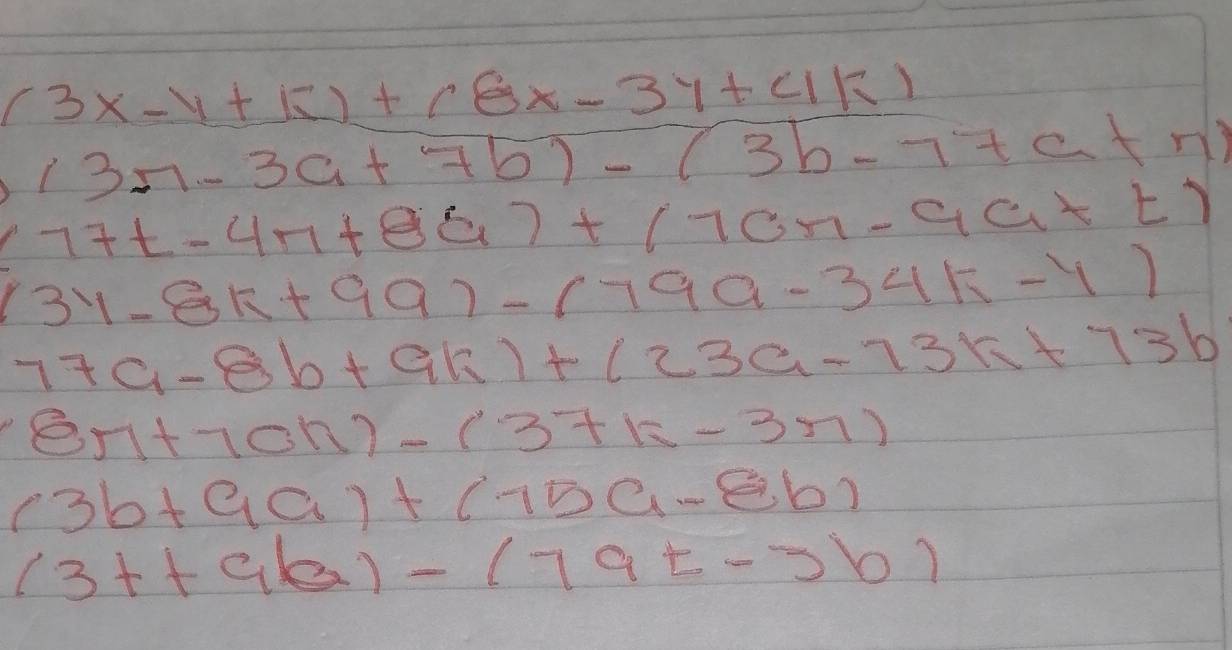 (3x-y+k)+(8x-3y+4k)
(3n-3a+7b)-(3b-17a+n)
(17t-4n+8a)+(10n-9a+t)
(3y-8k+9a)-(19a-34k-y)
17a-8b+9k)+(23a-13k+13b
(8n+10k)-(37k-3n)
(3b+9a)+(15a-8b)
(3t+9b)-(19t-3b)